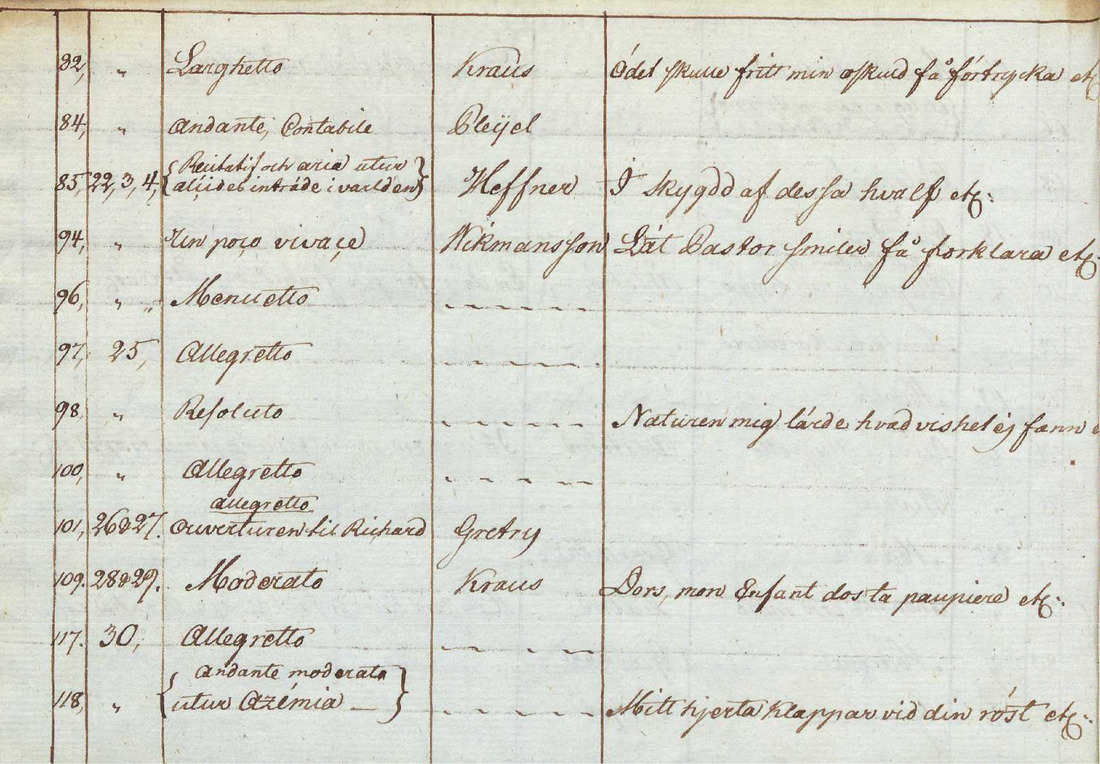 82, „ Larghetto Kraus Ödet skulle fritt min oskuld få förtrycka etc
84, „ Andante, Contabile Pleÿel
Recitatif och aria utur
85, 22, 3, 4, inträde i världen Heffner I skygdd af dessa hvalf etc:
94, „ Un poco vivace Wikmansson Låt Pastor Smiler få förklara etc:
96, „ „ Menuetto - - - -
97, 25, Allegretto - - - -
98, „ Resoluto - - - - Naturen mig lärde hvad vishet ej fann
100, „ Allegretto - - - -
Allegretto
101, 26 & 27. Ouverturen til Richard Gretry
109. 28 & 29. Moderato Kraus Dors, mon Enfant clos ta paupiere etc:
117. 30, Allegretto - - - -
Andante moderato
118, „ utur Azémia — - - - - Mitt hjerta klappar vid din röst etc: